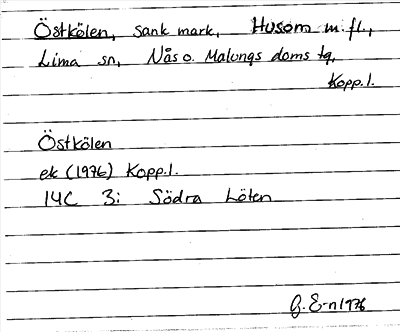 Östkölen, sank mark, Husom m. fl.,
Lima sn, Nås o. Malungs doms tg,
Kopp. l.
Östkölen
ek (1976) Kopp. l.
14C 3i Södra Löten
G. E-n 1976